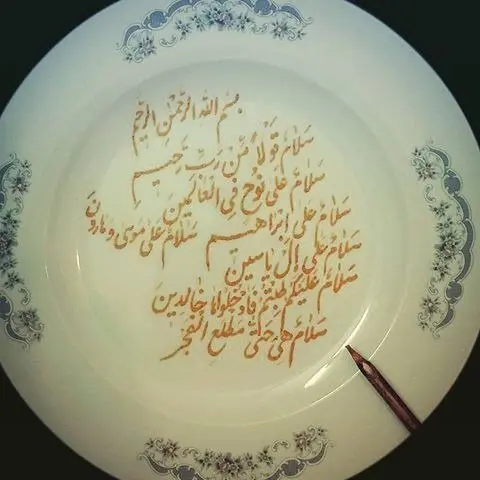 بسم الله الرّحمٰن الرّحیم
سَلامٌ قَوْلاً مِّن رَبِّ رَحیمٍ
سَلامٌ عَلی نُوْحٍ فِی الْعٰالَمینَ
سَلامٌ عَلی اِبْرٰاهیم سَلامٌ عَلیٰ مُوسیٰ وَهٰارُونَ
سَلامٌ عَلی اِلْ یٰاسینَ
سَلامٌ عَلَیْکُمْ طِبْتُمْ فَادْخُلُوهٰا خٰالِدینَ
سَلامٌ هِیَ حَتّیٰ مَطْلَعِ الْفَجْرِ